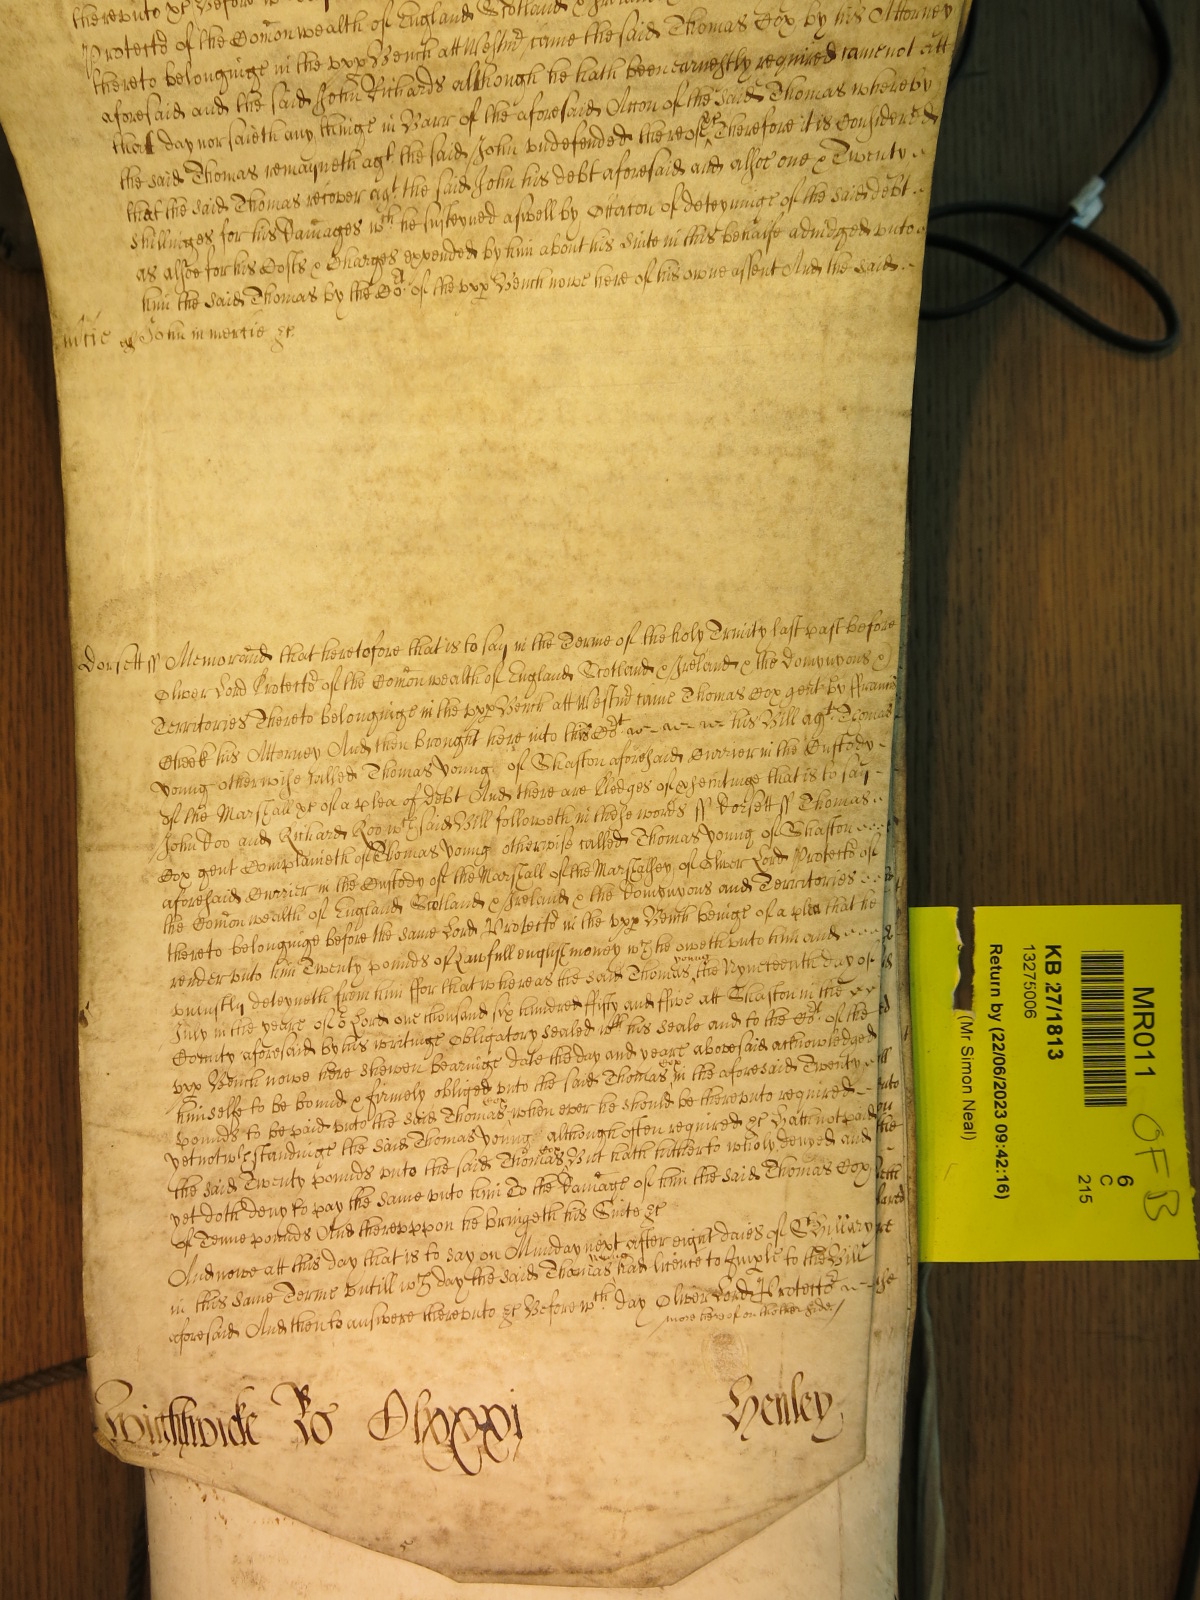 thereunto &c Before w
Protector of the Comonwealth of England Scotland & Ireland
thereto belonginge in the upp Bench att Westmr came the said Thomas Cox by his Attorney
aforesaid and the said John Richards although he hath been earnestly required came not att
that day nor saieth any thinge in Barr of the aforesaid Accon of the said Thomas whereby
the said Thomas remayneth agt the said John undefended thereof &c Therefore it is Considered
that the said Thomas recover agt the said John his debt aforesaid and alsoe one & Twenty
shillinges for his Damages wch he susteyned aswell by Occasion of deteyninge of the said debt
as alsoe for his Costs & Charges expended by him about his Suite in this behalfe adiudged unto
him the said Thomas by the Cort of the upp Bench nowe here of his owne assent And the said
John in mercie &c
Dorsett ss Memorand that heretofore that is to say in the Terme of the holy Trinity last past before
Oliver Lord Protector of the Comonwealth of England Scotland & Ireland & the Dominyons &
Territories Thereto belonginge in the upp Bench att Westmr came Thomas Cox gent by ffrancis
Cheek his Attorney And then brought here into this Cort his Bill agt Thomas
Young otherwise called Thomas Young of Shaston aforesaid Currier in the Custody
of the Marshall &c of a plea of debt And there are pledges of prosecutinge that is to say
John Doo and Richard Roo wch said Bill followeth in these words ss Dorsett ss Thomas
Cox gent Complaineth of Thomas Young otherwise called Thomas Young of Shaston
aforesaid Currier in the Custody of the Marshall of the Marshalsey of Oliver Lord Protector of
the Comonwealth of England Scotland & Ireland & the Dominyons and Territories
thereto belonginge before the same Lord Protector in the upp Bench beinge of a plea that he
render unto him Twenty pounds of Lawfull english money wch he oweth unto him and
uniustly deteyneth from him ffor that whereas the said Thomas Young the Nynteenth day of
July in the yeare of or Lord one thousand six hundred ffifty and ffive att Shaston in the
County aforesaid by his writinge obligatory sealed wth his seale and to the Cort of the
upp Bench nowe here shewen bearinge date the day and yeare abovesaid acknowledged
himselfe to be bound & firmely obliged unto the said Thomas Cox in the aforesaid Twenty
pounds to be paid unto the said Thomas Cox when ever he should be thereunto required
yet notwthstandinge the said Thomas Young although often required &c Hath not paid
the said Twenty pounds unto the said Thomas Cox But hath hitherto wholy denyed and
yet doth deny to pay the same unto him To the Damage of him the said Thomas Cox
of Tenne pounds And thereuppon he bringeth his Suite &c
And nowe att this day that is to say on Munday next after eight daies of St Hillary
in this same Terme untill wch day the said Thomas Young had licence to Imple to the Bill
aforesaid And then to answere thereunto &c Before wth day Oliver Lord Protector
more hereof on the other side
Wightwicke Ro Clxxxi
Henley
MR011
6
C
215
KB 27/1813
13275006
Return by (22/06/2023 09:42:16)
(Mr Simon Neal)
OF B